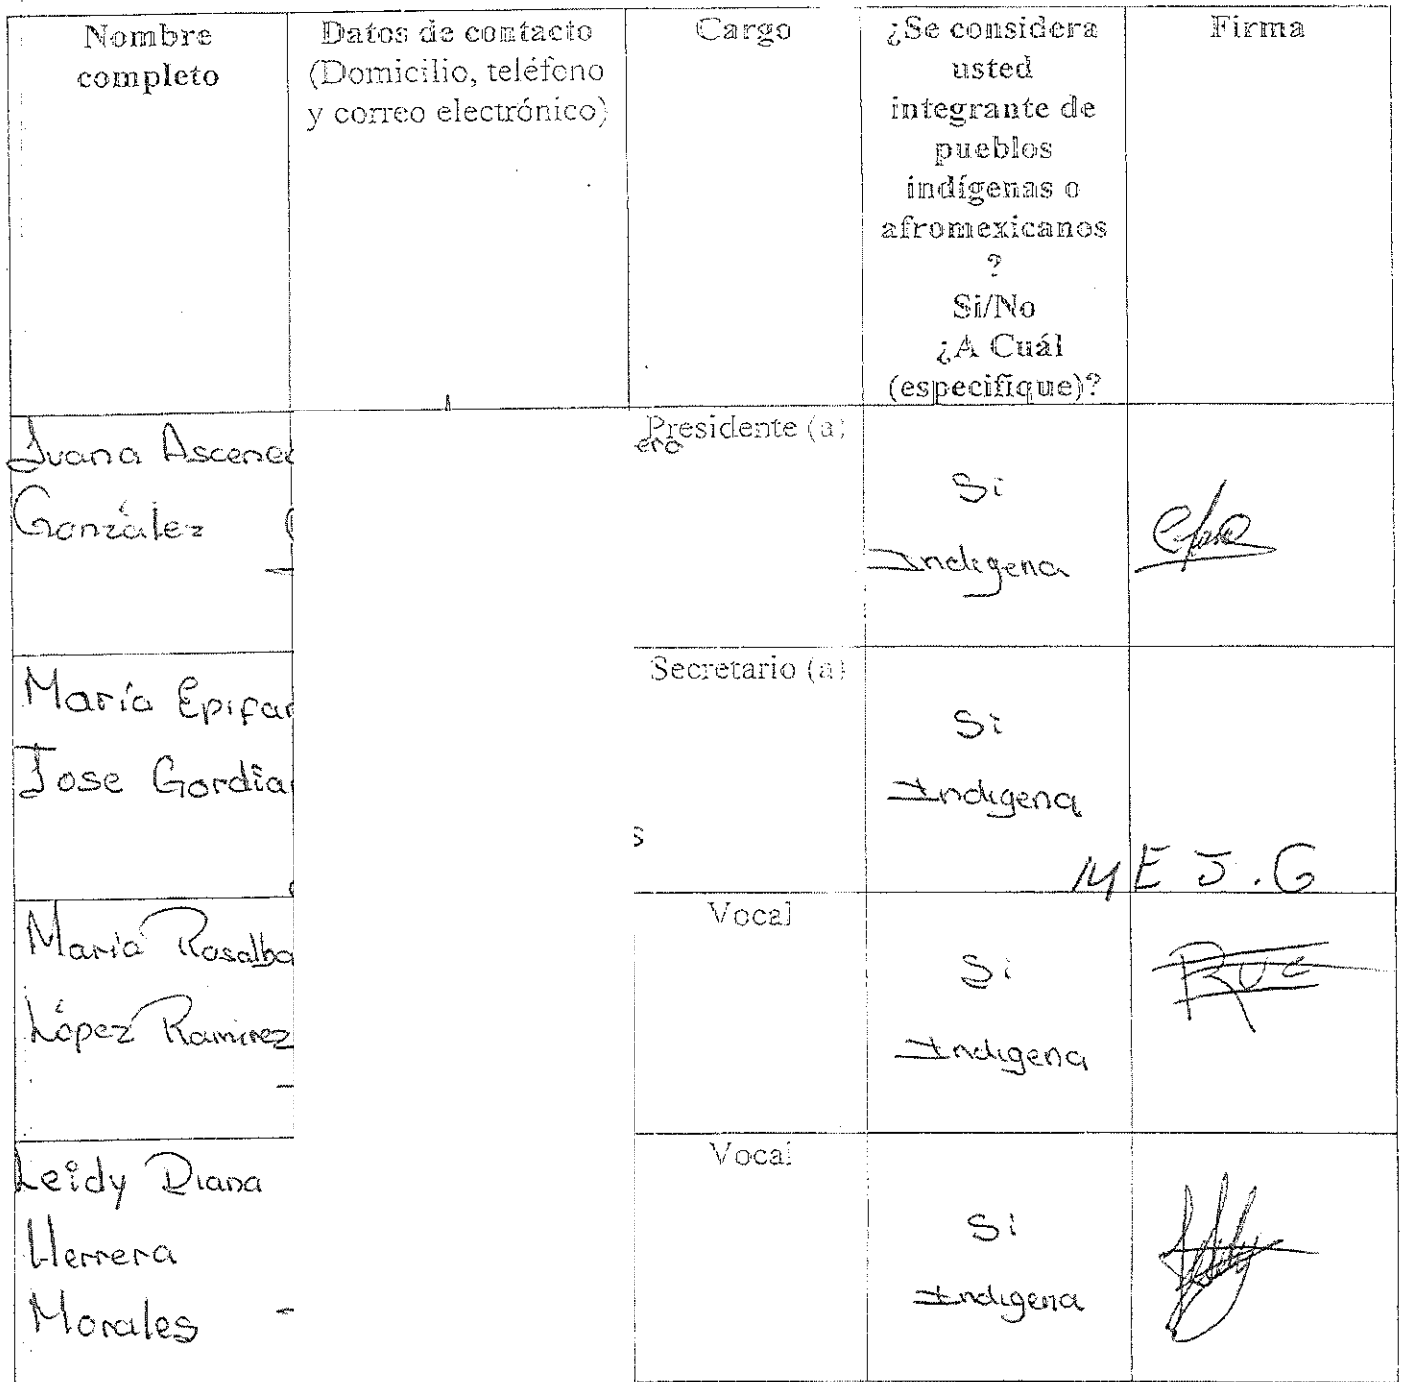 Nombre
completo
Datos de contacto
(Domicilio, teléfono
y correo electrónico)
Cargo
¿Se considera
usted
integrante de
pueblos
indígenas o
afromexicanos
?
Si/No
¿A Cuál
(especifique)?
Firma
Juana Ascenc
González
Presidente (a)
ero
Si
Indigena
María Epifan
Jose Gordia
Secretario (a)
s
Si
Indigena
M E J . G
Maria Rosalba
López Ramirez
Vocal
Si
Indigena
Leidy Diana
Herrera
Morales
Vocal
Si
Indigena